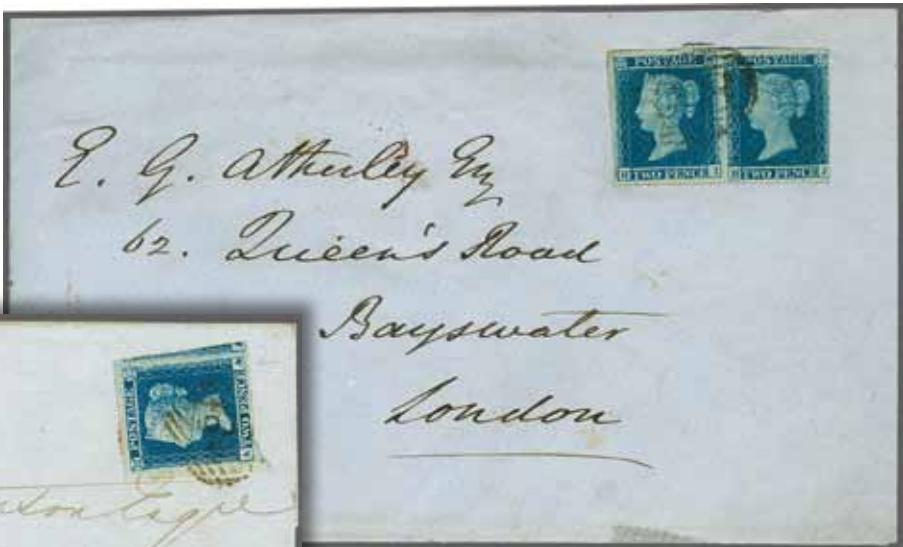 POSTAGE POSTAGE
TWO PENCE TWO PENCE
E. G. Atherley Esq
62. Queen's Road
Bayswater
London
POSTAGE
TWO PENCE